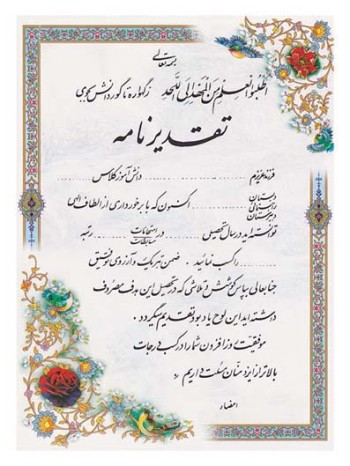 بسمه تعالی
اطلبوا العلم من المهد الی اللحد ز گهواره تا گور دانش بجوی
تقدیرنامه
فرزند عزیزم ........................ دانش آموز کلاس ................
دبستان
راهنمائی
دبیرستان
................ اکنون که با برخورداری از الطاف الهی
توانسته اید در سال تحصیلی ................ در امتحانات
مسابقات
................ رتبه
................ را کسب نمائید . ضمن تبریک و آرزوی توفیق
جنابعالی بپاس کوشش و تلاشی که در تحصیل این هدف مصروف
داشته اید این لوح یادبود تقدیم میگردد .
موفقیت روزافزون شما را در کسب درجات
بالاتر از ایزد منان مسئلت داریم
امضاء